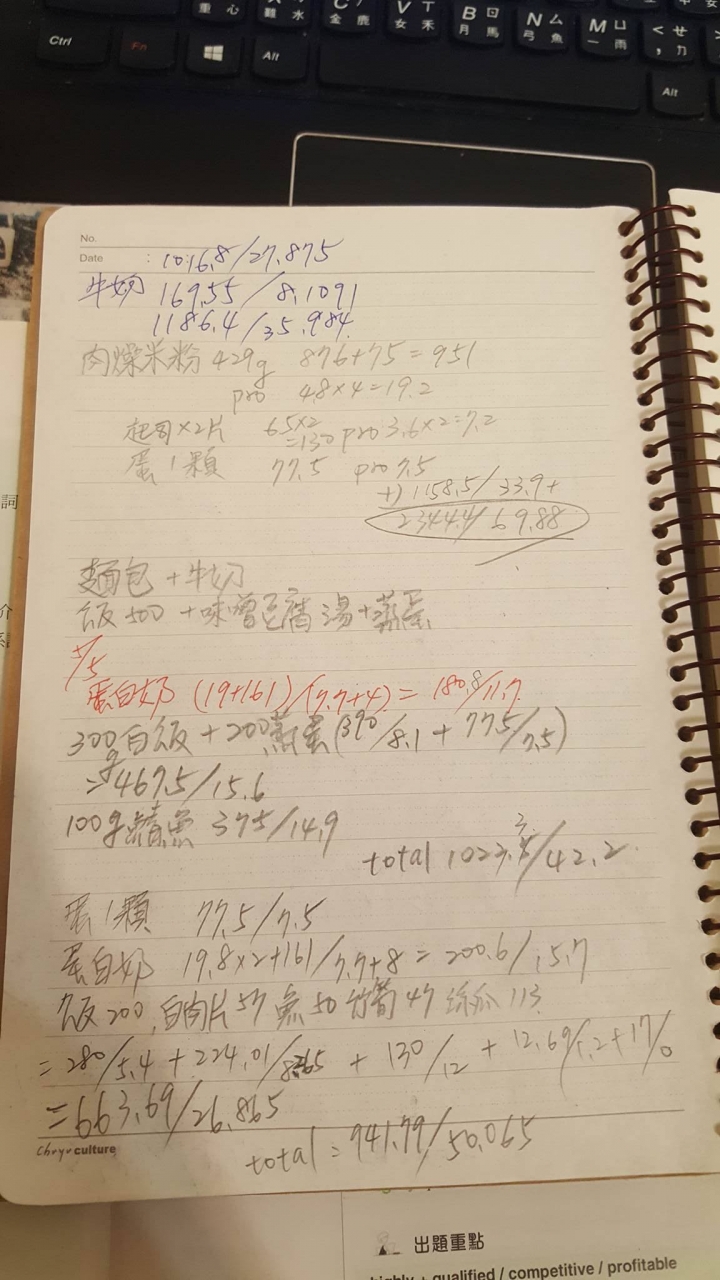 重 心
難 水
C 金 鹿
V ㄒ 女 禾
B ㄖ 月 馬
N ㄙ 弓 魚
M ㄩ 一 雨
< ㄝ , ㄉ
Ctrl Fn Alt Alt
No.
Date : 1016.8/27.875
牛奶 169.55/8.1091
1186.4/35.984
肉燥米粉 429g 876+75=951
pro 4.8×4=19.2
起司×2片 65×2
=130 pro 3.6×2=7.2
蛋1顆 77.5 pro 7.5
+) 1158.5/33.9+
2344.4/69.88
麵包+牛奶
飯500+味噌豆腐湯+蒸蛋
5/5
蛋白奶 (19+161)/(7.7+4)=180.8/11.7
300g白飯+200蒸蛋(390/8.1+77.5/7.5)
=467.5/15.6
100g鯖魚 375/14.9
total 1023.3/42.2
蛋1顆 77.5/7.5
蛋白奶 19.8×2+161/7.7+8=200.6/15.7
飯200,白肉片57 魚50 竹筍47 絲瓜113
=280/5.4+224.01/8.265+130/12+12.69/1.2+17/0
=663.69/26.865
total=941.79/50.065
culture
詞
介
出題重點
highly + qualified / competitive / profitable